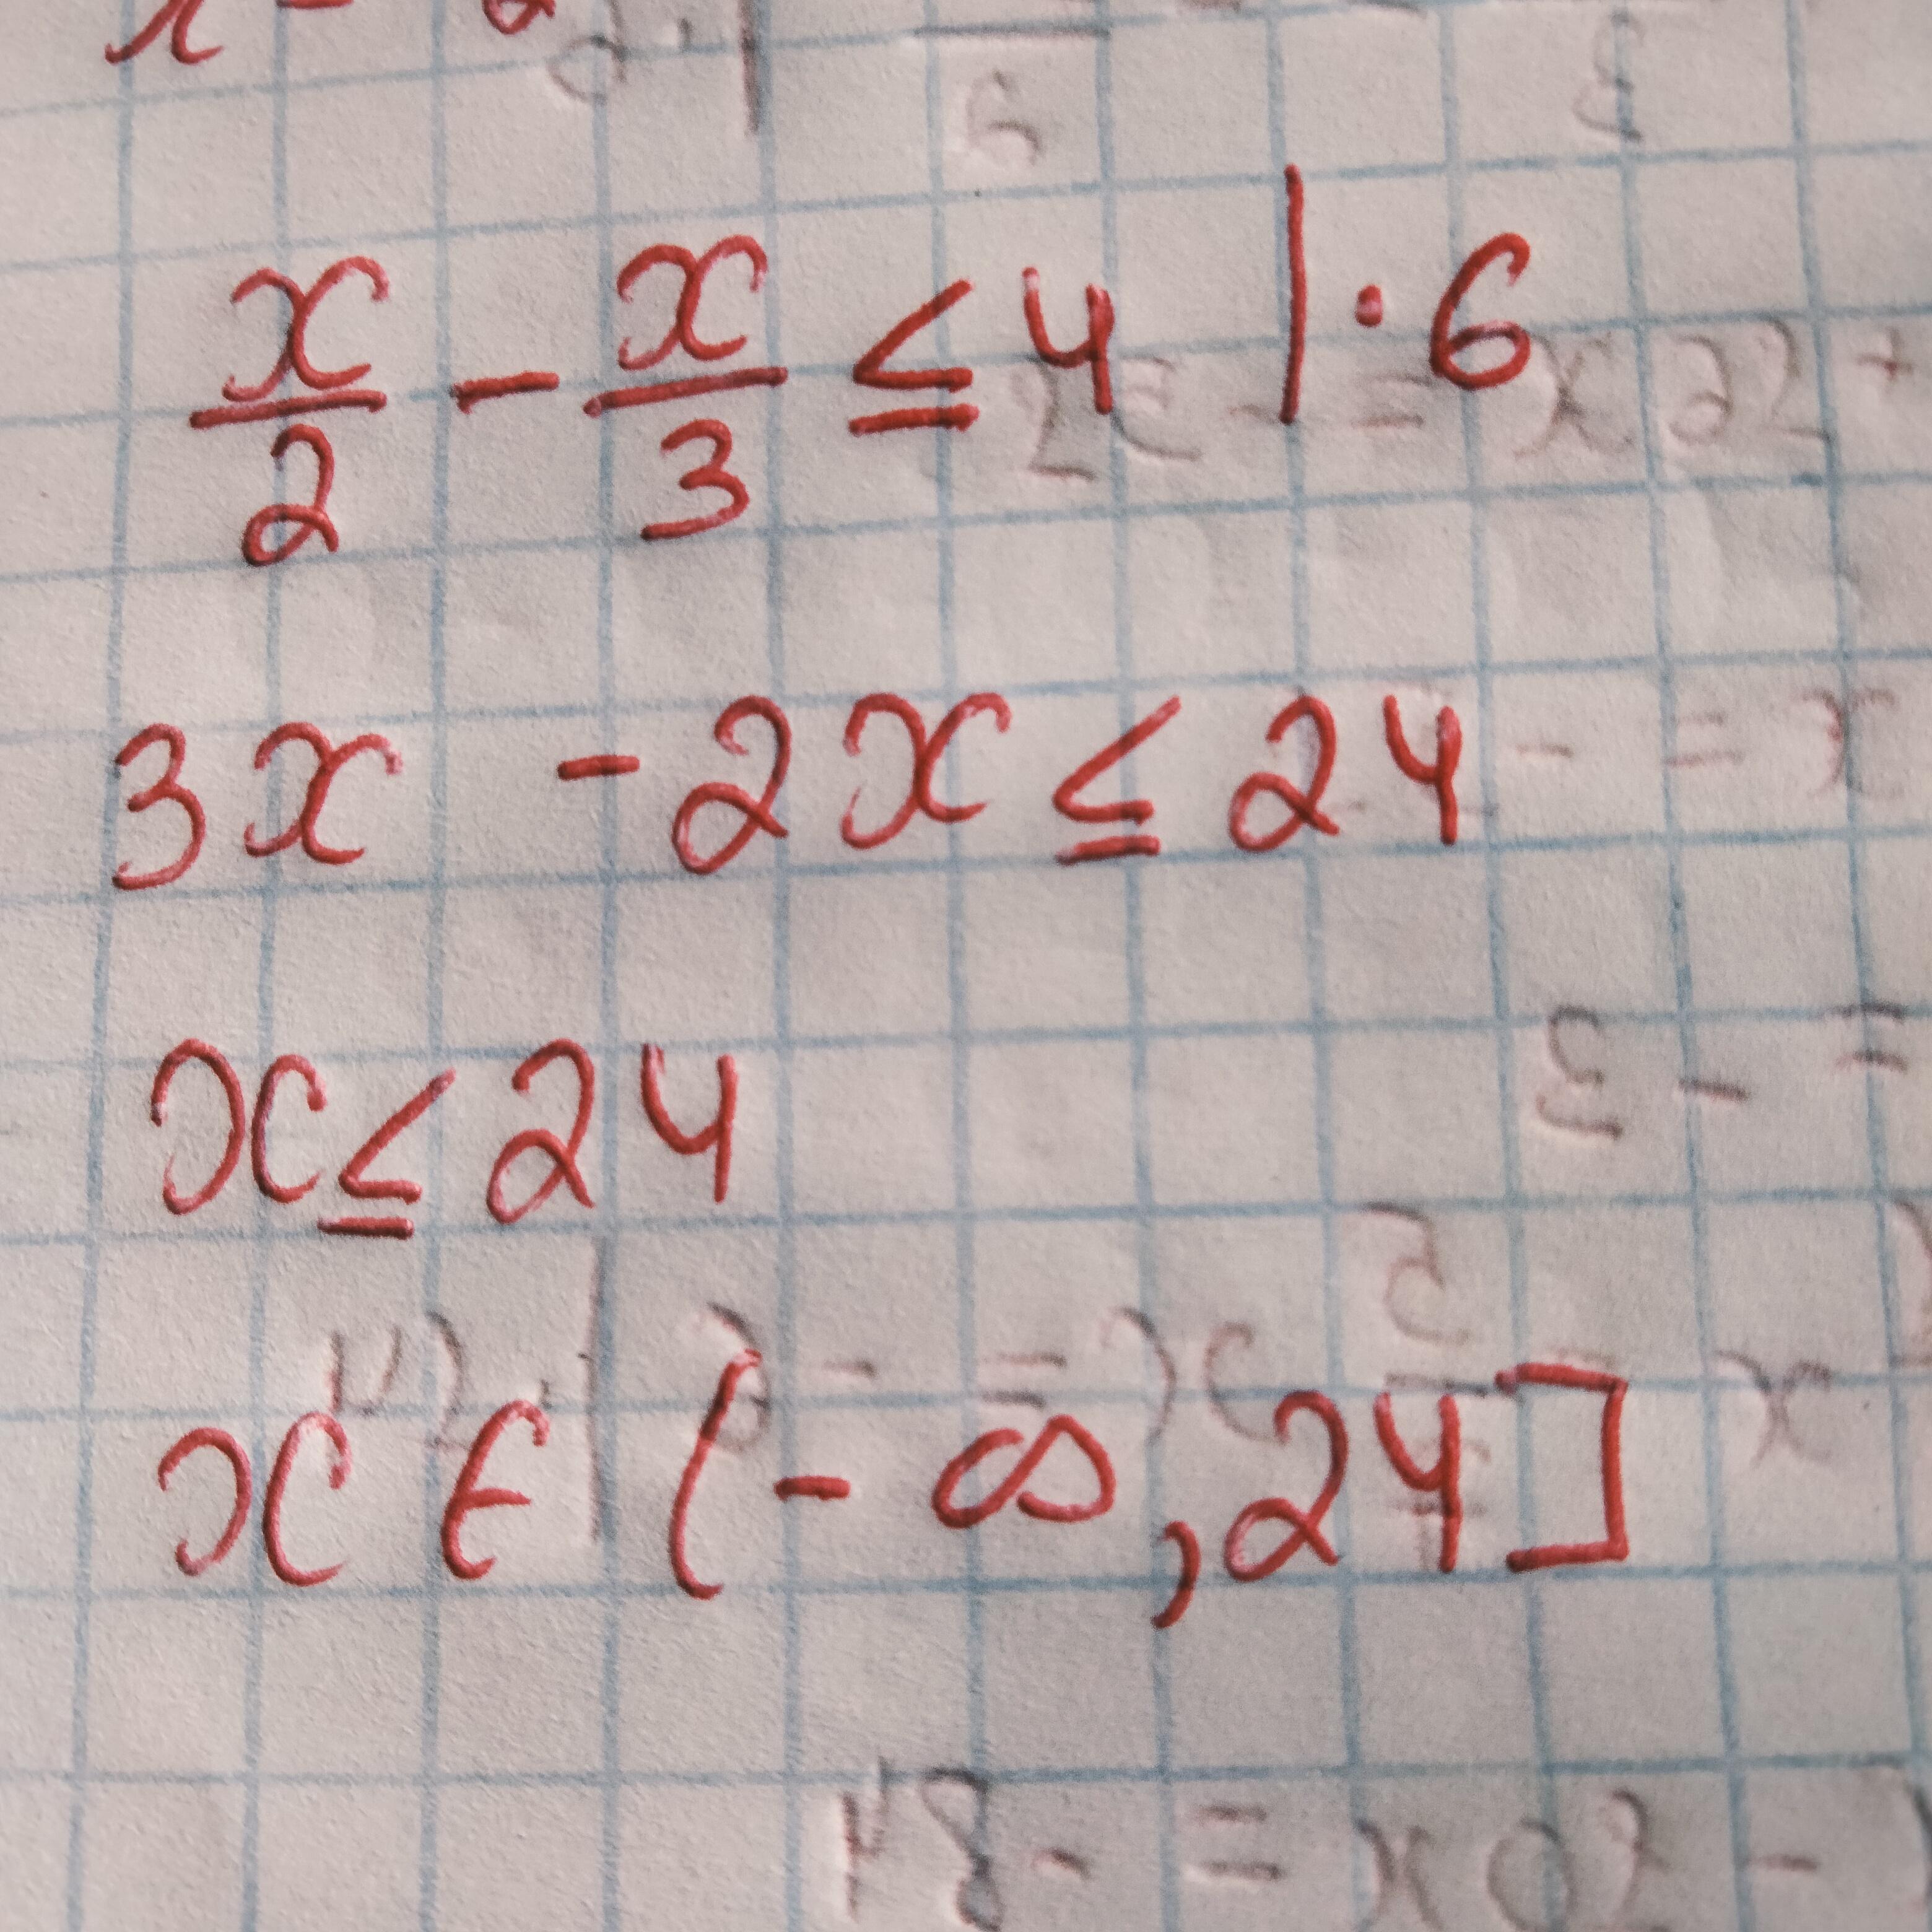 x/2 - x/3 ≤ 4 | · 6
3x - 2x ≤ 24
x ≤ 24
x ∈ (-∞, 24]